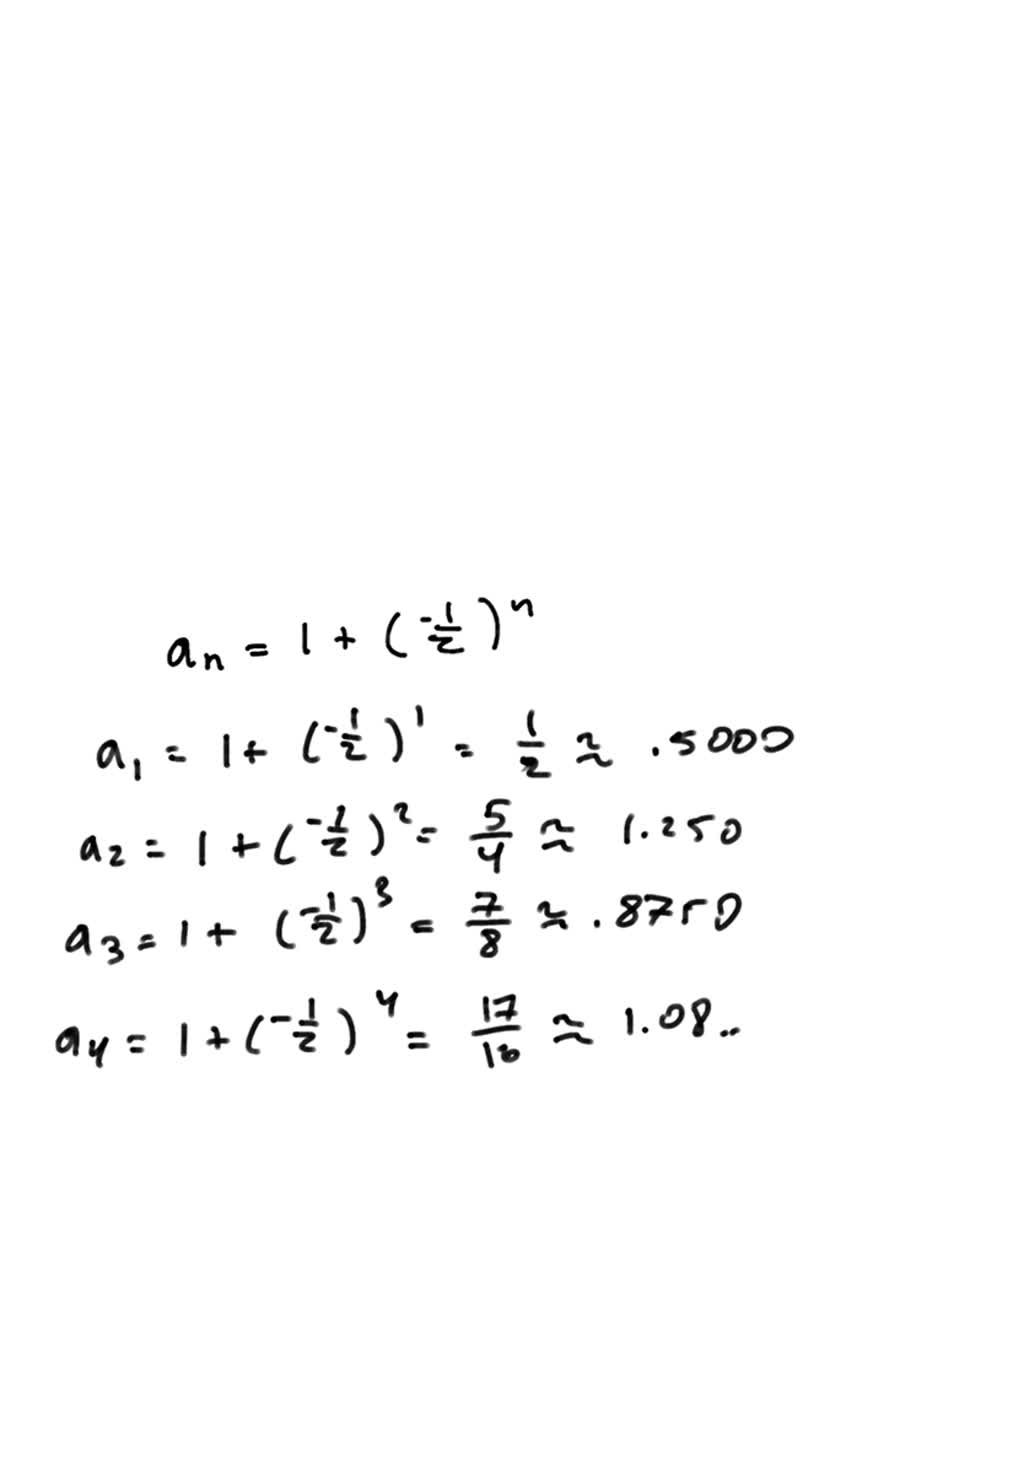 aₙ = 1 + (-1/2)ⁿ
a₁ = 1 + (-1/2)¹ = 1/2 ≈ .5000
a₂ = 1 + (-1/2)² = 5/4 ≈ 1.250
a₃ = 1 + (-1/2)³ = 7/8 ≈ .8750
a₄ = 1 + (-1/2)⁴ = 17/16 ≈ 1.08..